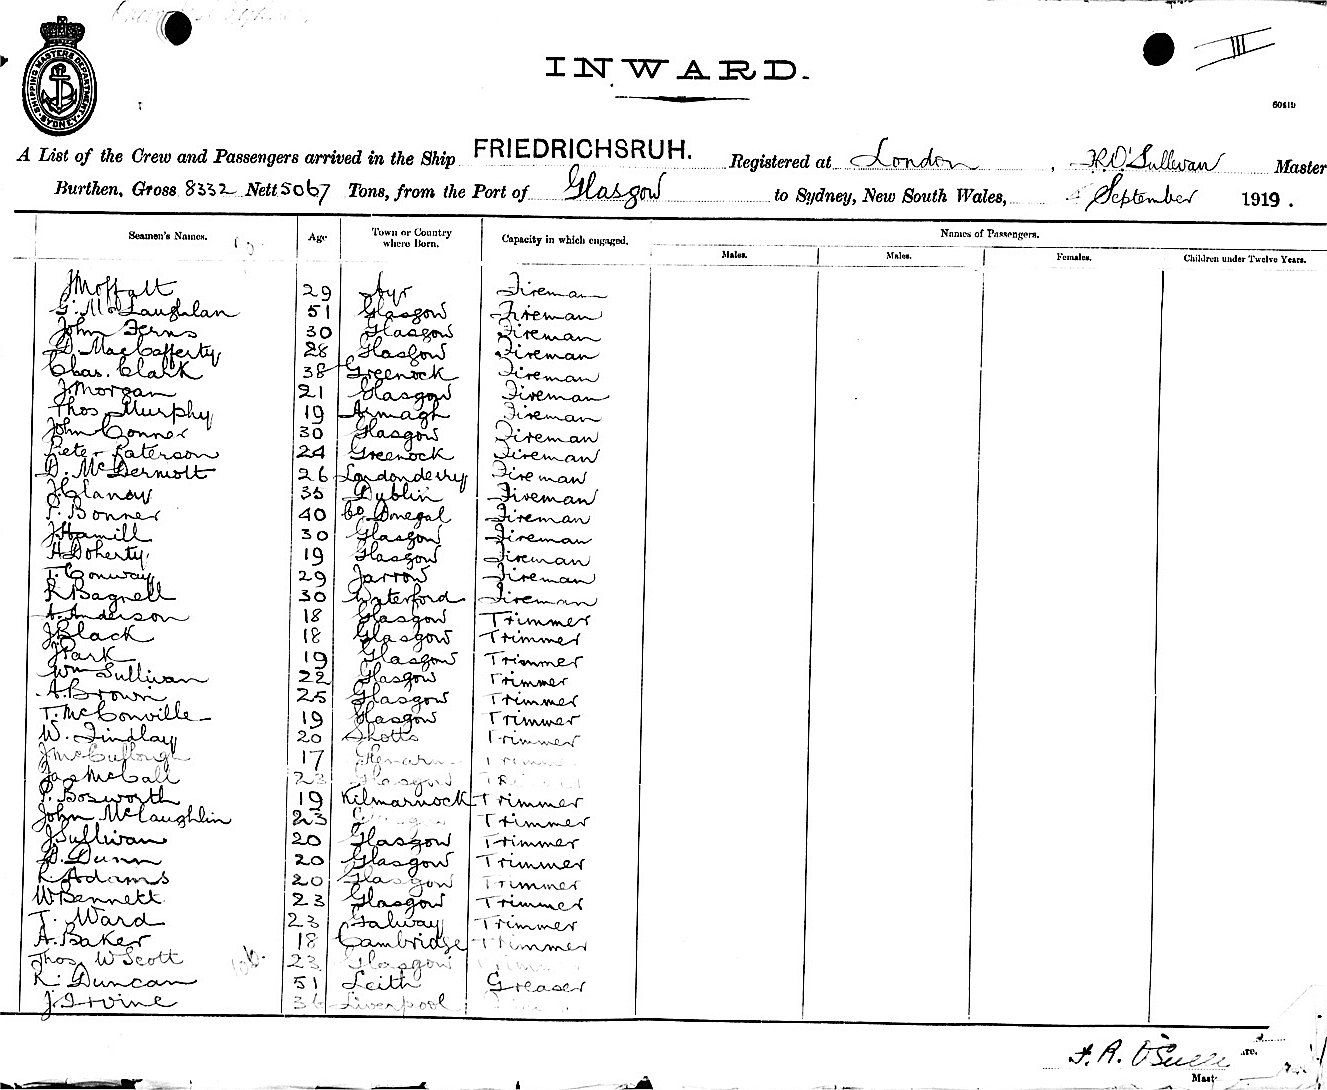 SHIPPING MASTERS DEPARTMENT SYDNEY
III
INWARD.
A List of the Crew and Passengers arrived in the Ship FRIEDRICHSRUH. Registered at London, F.R. O'Sullivan Master
Burthen, Gross 8332 Nett 5067 Tons, from the Port of Glasgow to Sydney, New South Wales, September 1919.
Seamen's Names. Age Town or Country where Born. Capacity in which engaged. Names of Passengers.
Males. Males. Females. Children under Twelve Years.
J Moffatt 29 Ayr Fireman
G. McLaughlan 51 Glasgow Fireman
John Ferns 30 Glasgow Fireman
D. MacCafferty 28 Glasgow Fireman
Chas. Clark 38 Greenock Fireman
J. Morgan 21 Glasgow Fireman
Thos Murphy 19 Armagh Fireman
John Conner 30 Glasgow Fireman
Peter Paterson 24 Greenock Fireman
D. McDermott 26 Londonderry Fireman
J. Clancy 35 Dublin Fireman
P. Bonner 40 Co. Donegal Fireman
J Hamill 30 Glasgow Fireman
H. Doherty 19 Glasgow Fireman
T. Conway 29 Jarrow Fireman
R Bagnell 30 Waterford Fireman
A. Anderson 18 Glasgow Trimmer
J Black 18 Glasgow Trimmer
J Park 19 Glasgow Trimmer
Wm Sullivan 22 Glasgow Trimmer
A. Brown 25 Glasgow Trimmer
T. McConville 19 Glasgow Trimmer
W. Findlay 20 Shotts Trimmer
J McCullough 17 Trimmer
Jas McCall 23 Glasgow
P. Bosworth 19 Kilmarnock Trimmer
John McLaughlin 23 Trimmer
J Sullivan 20 Glasgow Trimmer
D. Dunn 20 Glasgow Trimmer
R. Adams 20 Glasgow Trimmer
W Bennett 23 Glasgow Trimmer
T. Ward 23 Galway Trimmer
A. Baker 18 Cambridge Trimmer
Thos W Scott 23 Glasgow
R. Duncan 51 Leith Greaser
J. Irvine 36 Liverpool